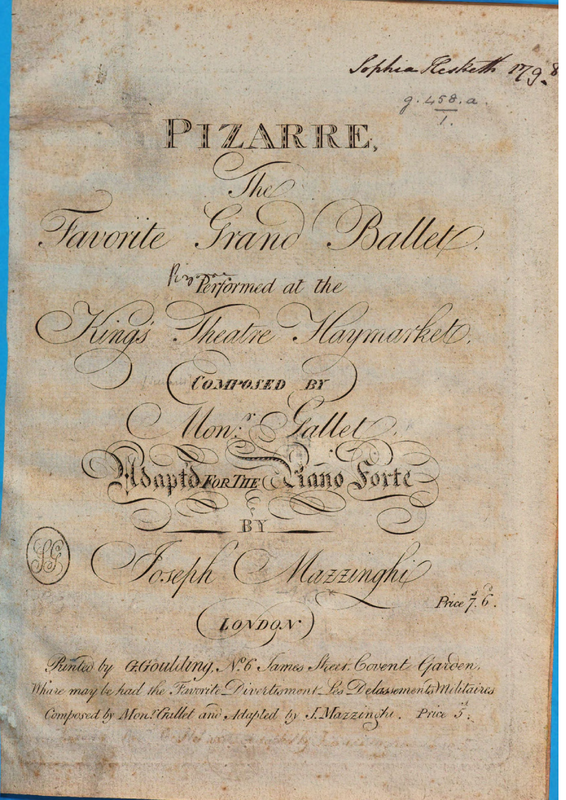 Sophia Hesketh 179-8
g. 458. a.
1.
PIZARRE,
The
Favorite Grand Ballet.
Performed at the
King's Theatre Haymarket.
COMPOSED BY
Monr. Gallet.
Adaptd FOR THE Piano Forte
BY
Joseph Mazzinghi
Price 7s. 6d.
LONDON.
Printed by G. Goulding, No. 6 James Street Covent Garden,
Where may be had the Favorite Divertisment Les Delassements Militaires
Composed by Monr. Gallet and Adapted by J. Mazzinghi. Price 5s.